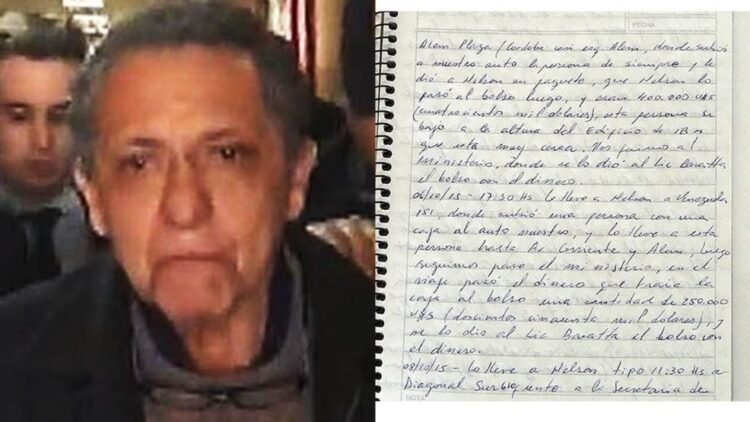 FECHA
Alem Plaza (Cordoba casi esq Alem, donde subio
a nuestro auto la persona de siempre y le
dió a Nelson un paquete, que Nelson lo
pasó al bolso luego, y eran 400.000 U$S
(cuatrocientos mil dolares), esta persona se
bajo a la altura del Edificio de IBM
que esta muy cerca. Nos fuimos al
Ministerio, donde se lo dió al Lic Baratta
el bolso con el dinero.
06/10/15 - 17:30 HS Lo lleve a Nelson a Venezuela
151, donde subió una persona con una
caja al auto nuestro, y lo lleve a esta
persona hasta Av Corriente y Alem, luego
seguimos para el ministerio, en el
viaje pasó el dinero que traia la
caja al bolso una cantidad de 250.000
U$S (doscientos cincuenta mil dolares), y
se lo dio al Lic Baratta el bolso con
el dinero.
08/10/15 - Lo lleve a Nelson tipo 11:30 HS a
Diagonal Sur 610, junto a la Secretaria de
NOTA